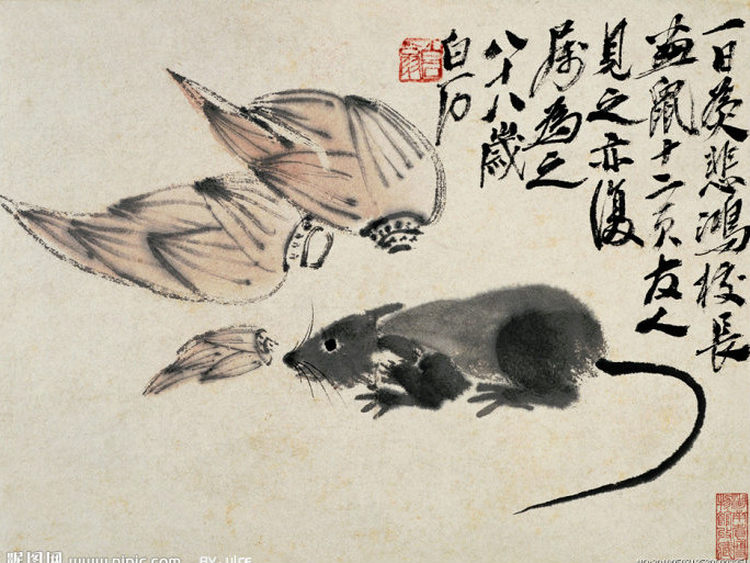 一日為悲鴻校長
畫鼠十二頁友人
見之亦復
屬為之
八十八歲
白石
昵图网 www.nipic.com